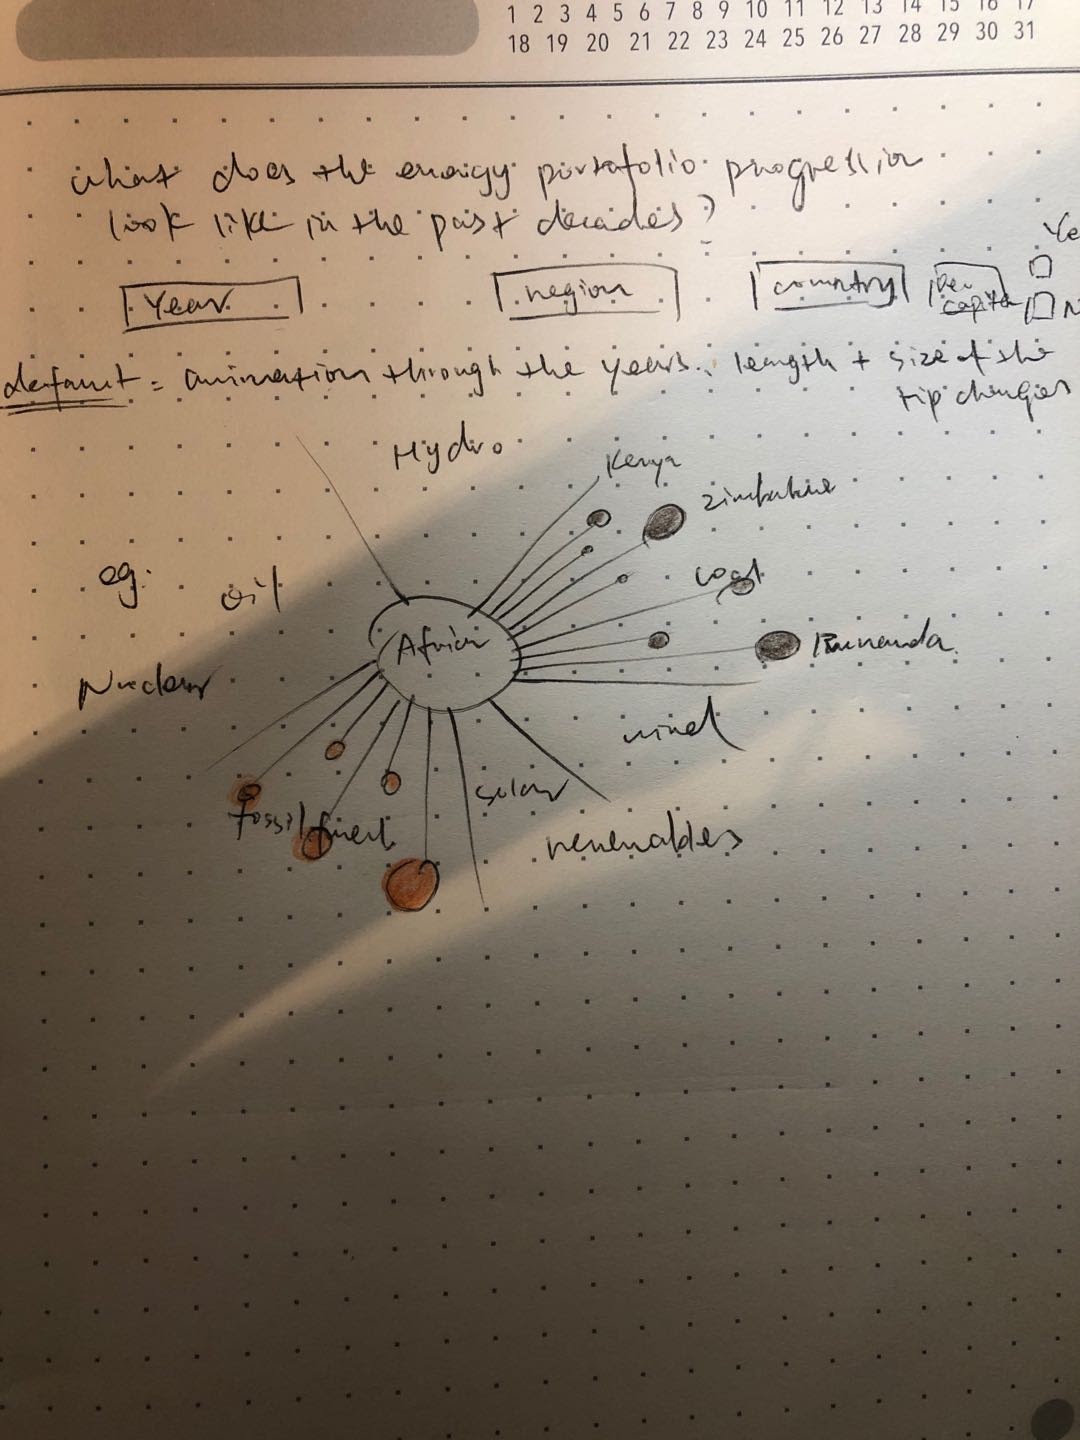 1 2 3 4 5 6 7 8 9 10 11 12 13 14 15 16 17
18 19 20 21 22 23 24 25 26 27 28 29 30 31
what does the energy portafolio progression
look like in the past decades?
Ye
Year region country per capita N
default = animation through the years. length + size of the
tip changes
Hydro
Kenya
Zimbabwe
eg.
oil
coal
Africa
Rwanda
Nuclear
wind
solar
fossil fuel
renewables